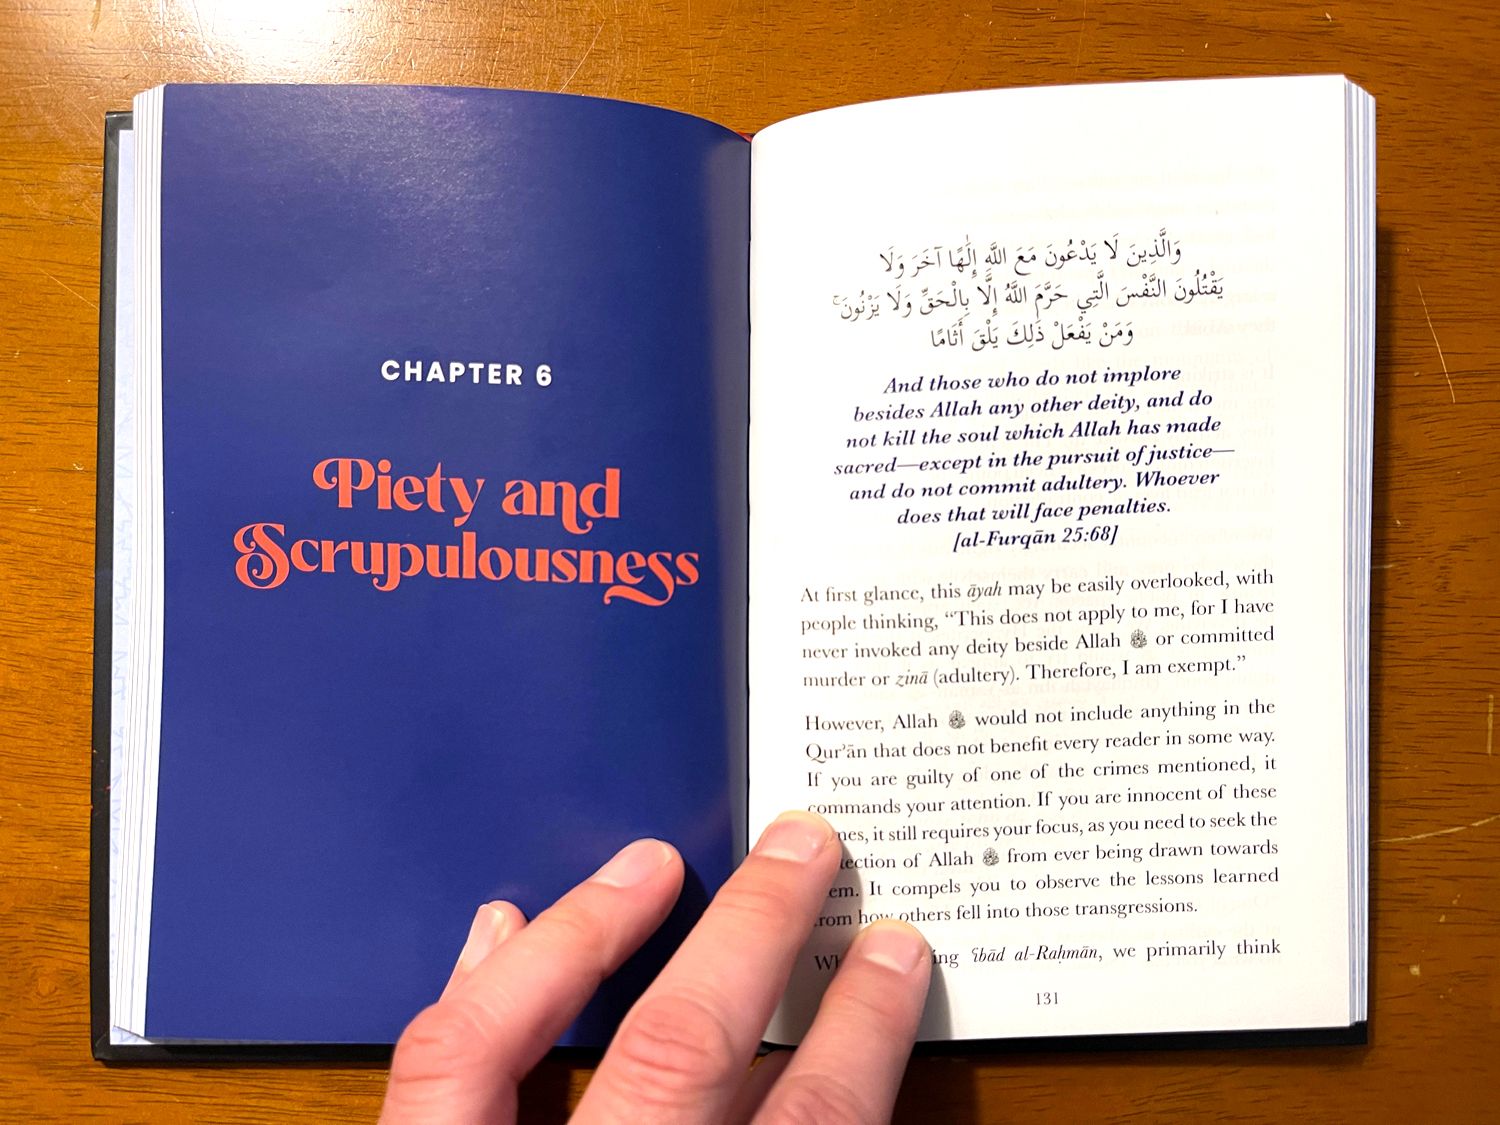 CHAPTER 6
Piety and
Scrupulousness
وَالَّذِينَ لَا يَدْعُونَ مَعَ اللَّهِ إِلَٰهًا آخَرَ وَلَا
يَقْتُلُونَ النَّفْسَ الَّتِي حَرَّمَ اللَّهُ إِلَّا بِالْحَقِّ وَلَا يَزْنُونَ ۚ
وَمَنْ يَفْعَلْ ذَٰلِكَ يَلْقَ أَثَامًا
And those who do not implore
besides Allah any other deity, and do
not kill the soul which Allah has made
sacred—except in the pursuit of justice—
and do not commit adultery. Whoever
does that will face penalties.
[al-Furqān 25:68]
At first glance, this āyah may be easily overlooked, with
people thinking, “This does not apply to me, for I have
never invoked any deity beside Allah or committed
murder or zinā (adultery). Therefore, I am exempt.”
However, Allah would not include anything in the
Qurʾān that does not benefit every reader in some way.
If you are guilty of one of the crimes mentioned, it
commands your attention. If you are innocent of these
it still requires your focus, as you need to seek the
of Allah from ever being drawn towards
It compels you to observe the lessons learned
how others fell into those transgressions.
ʿibād al-Raḥmān, we primarily think
131